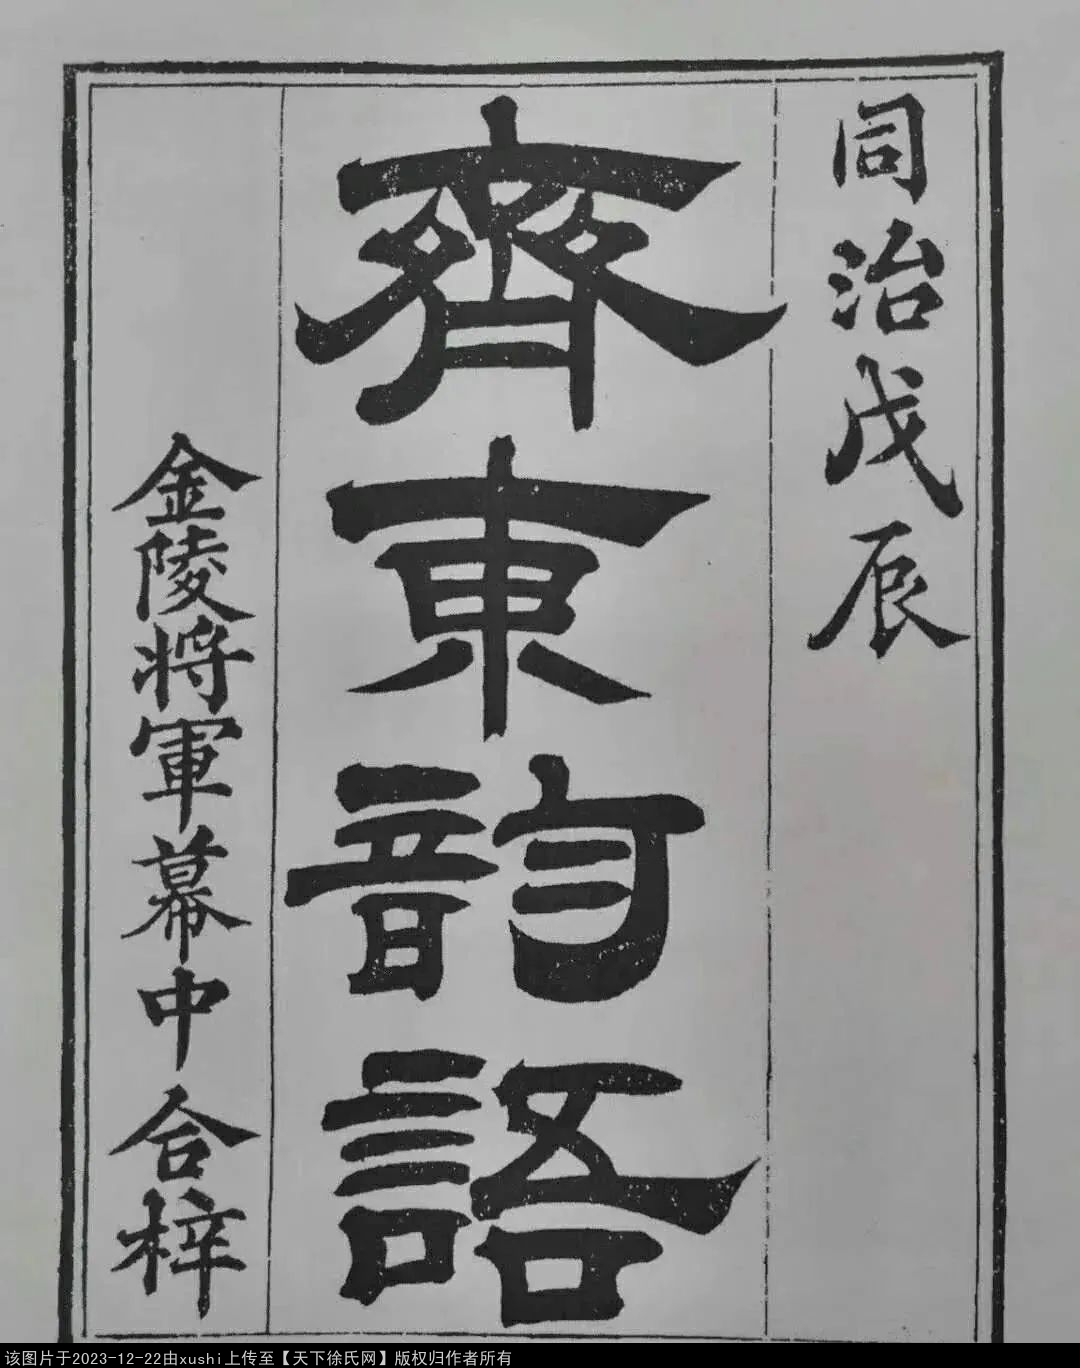 同治戊辰
齊東韵語
金陵將軍幕中合梓
该图片于2023-12-22由xushi上传至【天下徐氏网】版权归作者所有